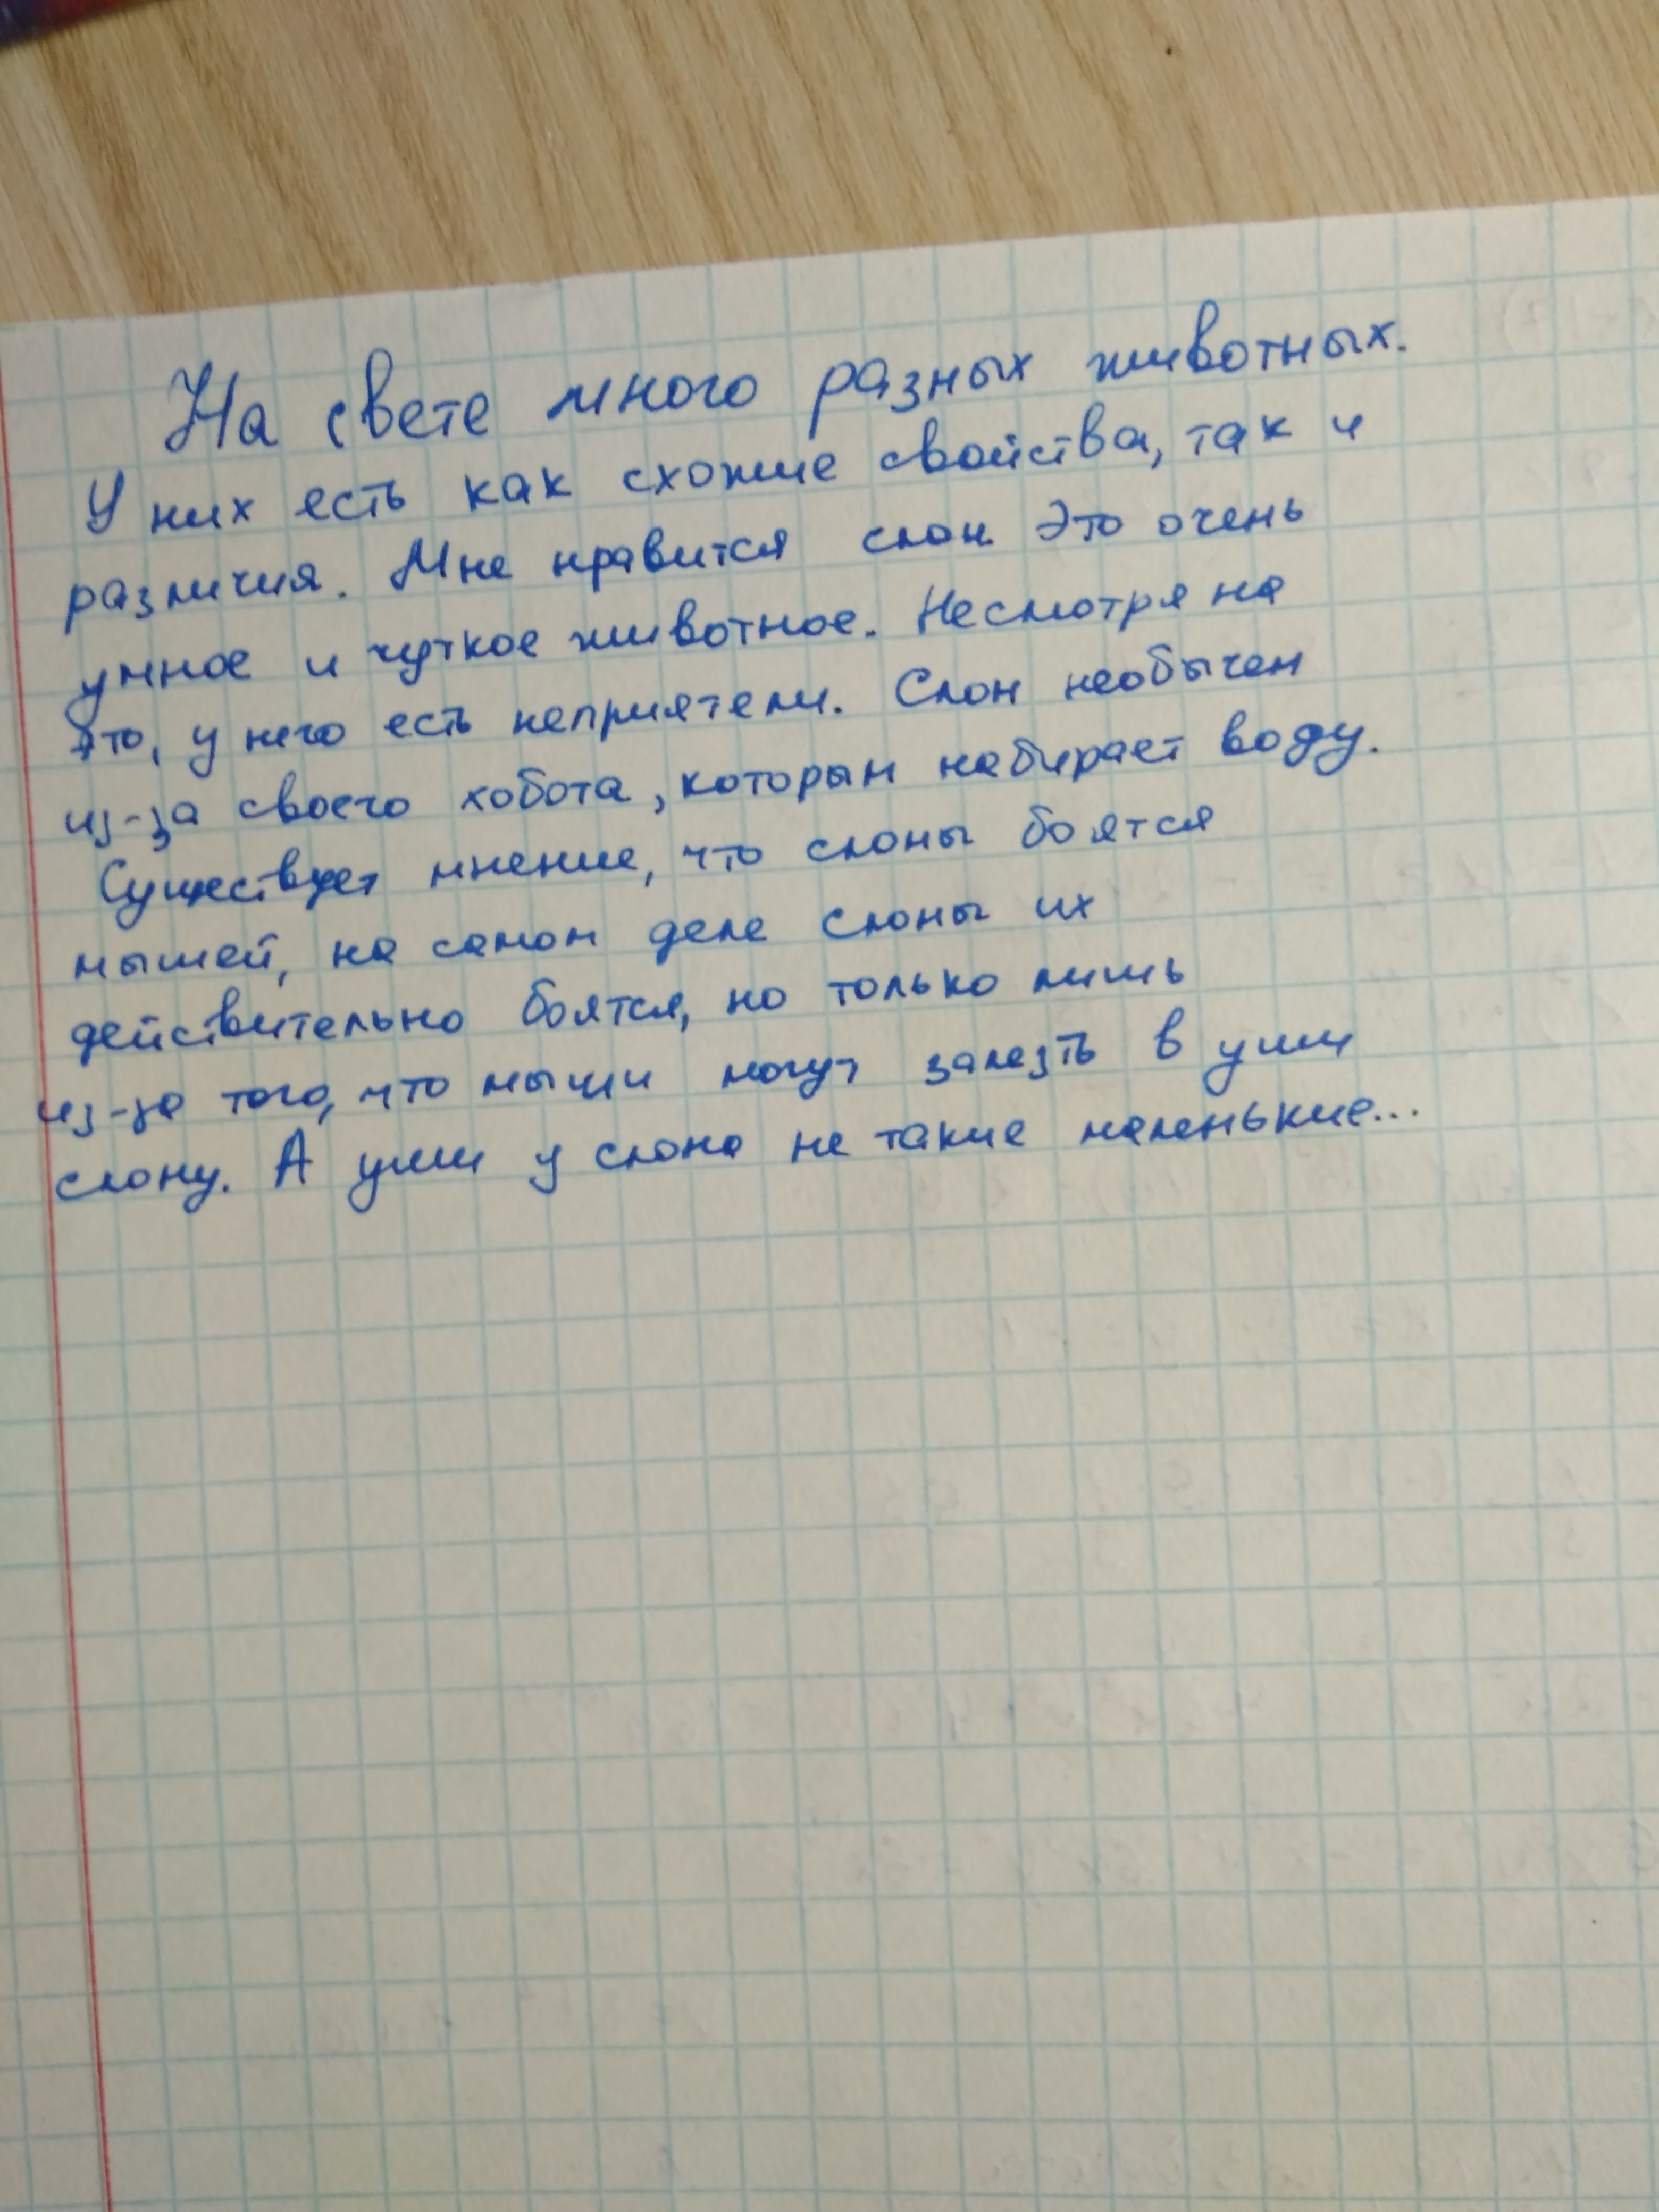 На свете много разных животных.
У них есть как схожие свойства, так и
различия. Мне нравится слон. Это очень
умное и чуткое животное. Несмотря на
это, у него есть неприятели. Слон необычен
из-за своего хобота, которым набирает воду.
Существует мнение, что слоны боятся
мышей, на самом деле слоны их
действительно боятся, но только лишь
из-за того, что мыши могут залезть в уши
слону. А уши у слона не такие маленькие...